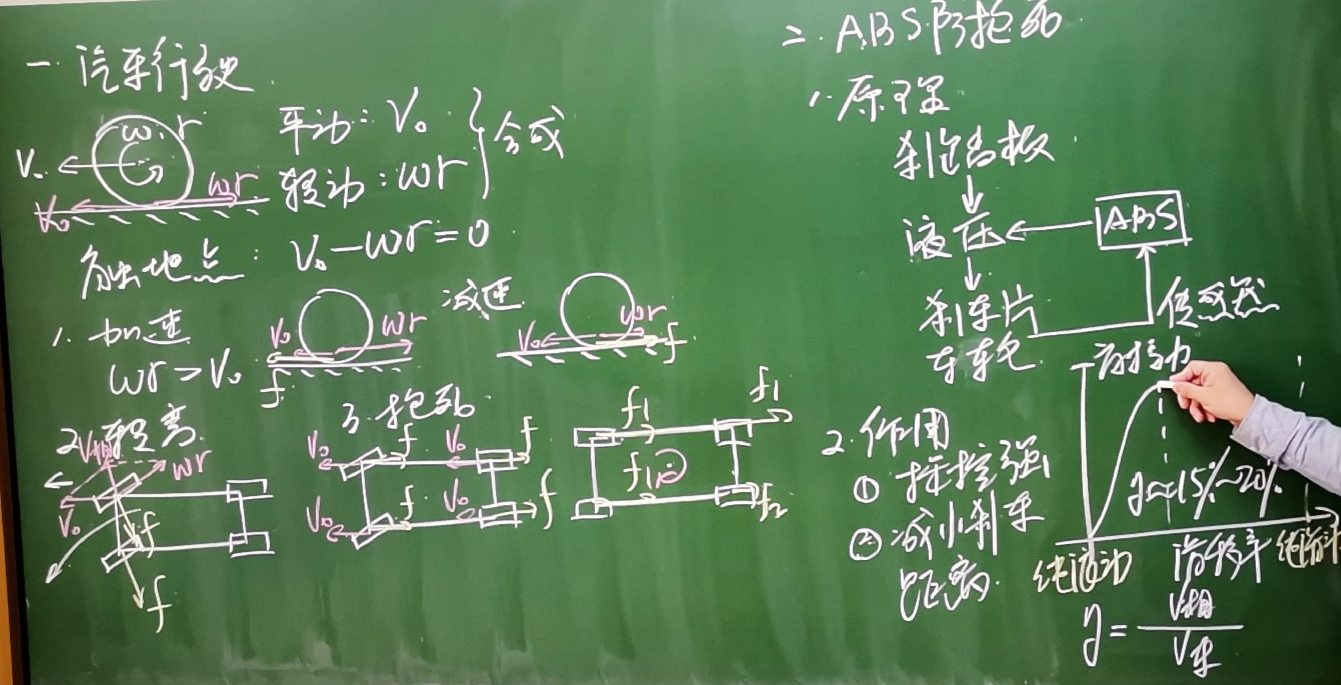 一. 汽车行驶
ω. r
V₀
ωr
V₀
平动: V₀
转动: ωr
合成
触地点: V₀-ωr=0
1. 加速
ωr>V₀
V₀ ωr
f
减速
V₀ ωr
f
2. 转弯
V相
ωr
V₀
f
f
3. 抱死
V₀ f V₀ f
V₀ f V₀ f
f₁ f₁
f₁
f₂
二. ABS防抱死
1. 原理
刹车踏板
液压
ABS
刹车片
传感器
车轮
2. 作用
① 操控强
② 减小刹车
距离.
摩擦力
η≈15%~20%
纯滚动 滑移率 纯滑动
η = V相/V车